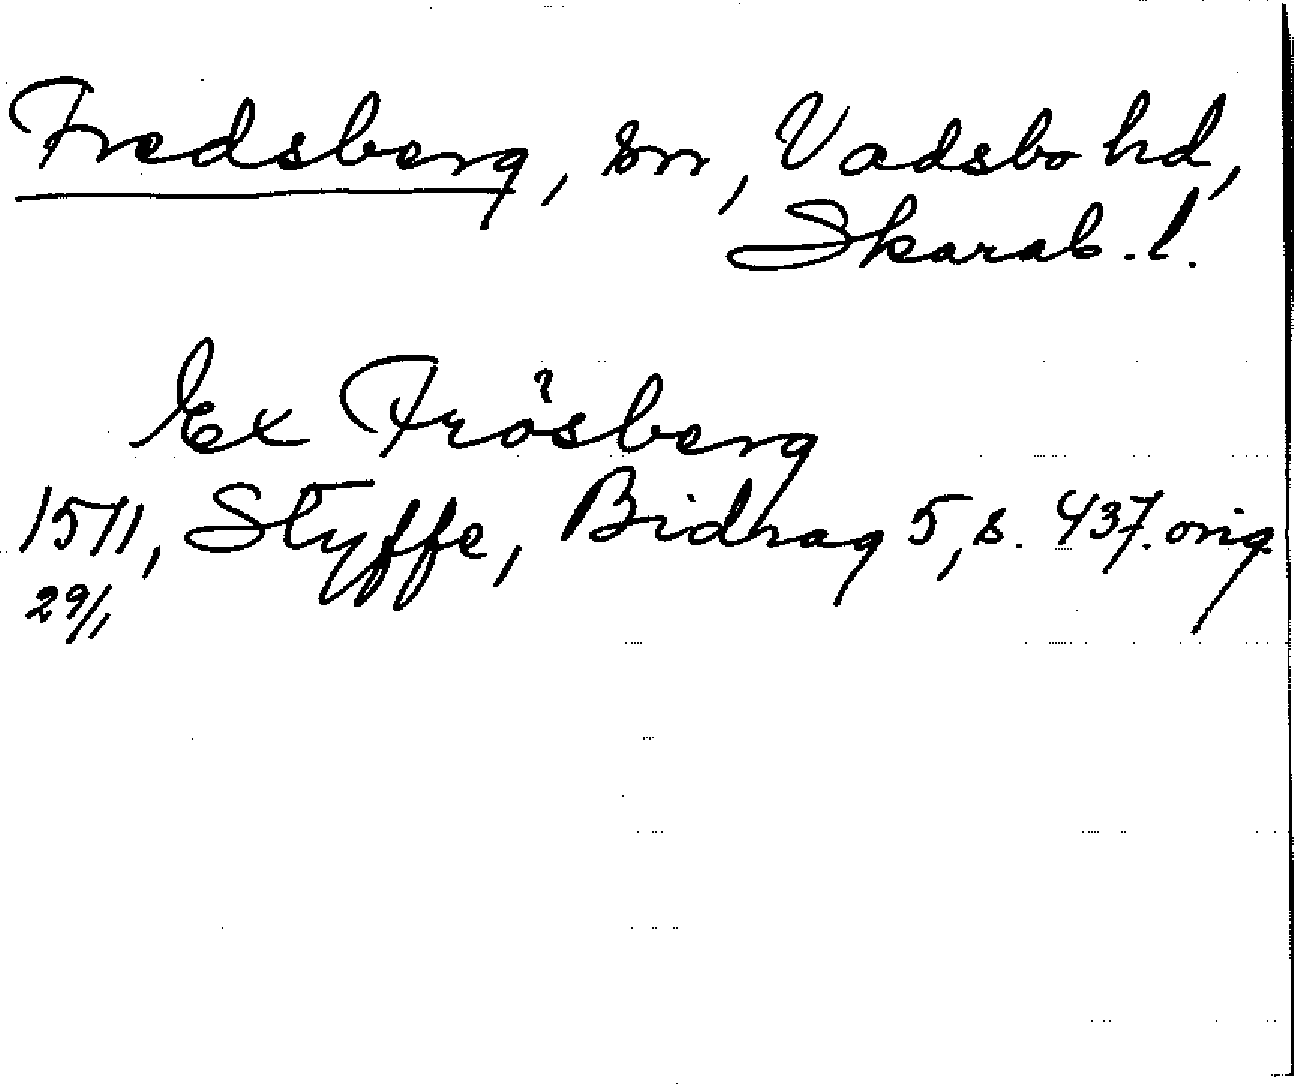 Fredsberg, sn, Vadsbo hd,
Skarab. l.
Ex Frösberg
1511, Styffe, Bidrag 5, s. 437. orig
29/1